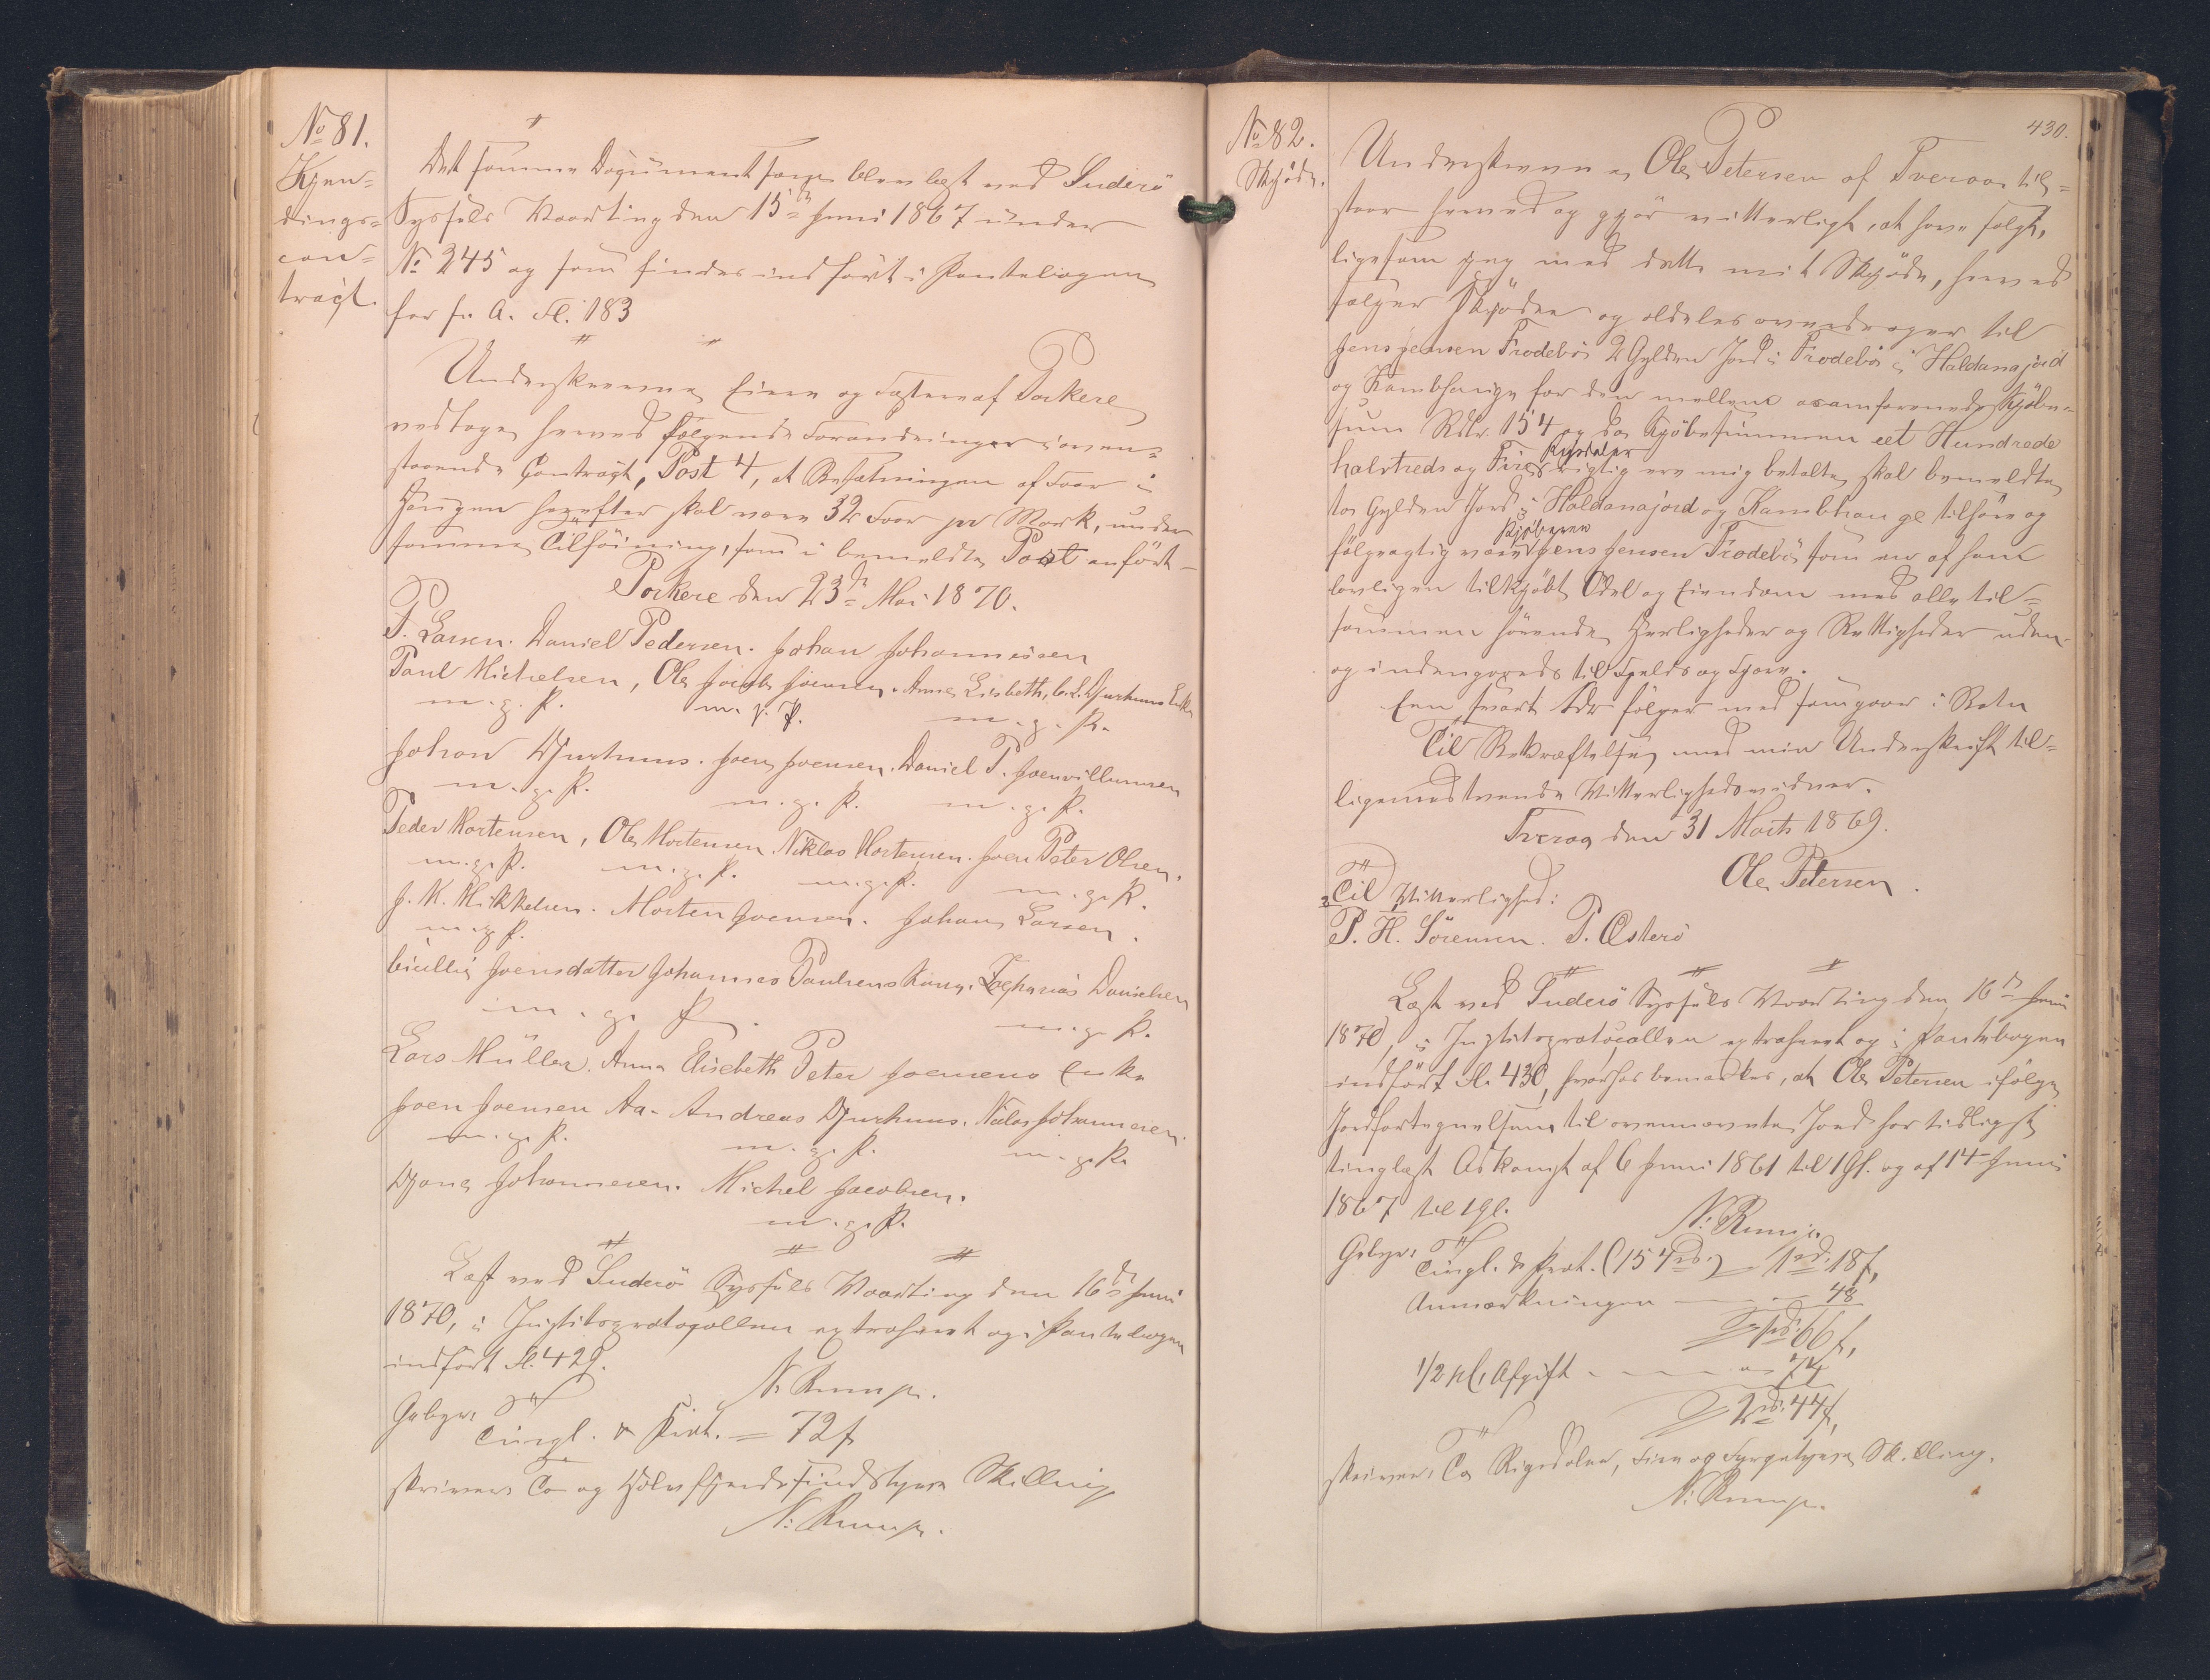 No 81.
Kjen=
dings=
con=
tract.
Det samme Document som blev læst ved Suderö
Syssels Vaarting den 15de Juni 1867 under
No 245 og som findes indfört i Pantebogen
for s. A. Fl. 183
Underskrevne Eiere og Fæstere af Porkere
vedtage herved fölgende Forandringer i oven=
staaende Contract, Post 4, at Besætningen af Faar i
Haugen herefter skal være 32 Faar pr Mark, under
samme Tilföining, som i bemeldte Post anfört
Porkere den 23de Mai 1870.
P. Larsen. Daniel Pedersen. Johan Johannesen
Paul Michelsen, Ole Jacob Joensen. Anne Lisbeth, C. L. Djurhuus Enke
m. g. P. m. g. P. m. g. P.
Johan Djurhuus. Joen Joensen. Daniel P. Joenvillumsen
m. g. P. m. g. P. m. g. P.
Peder Mortensen, Ole Mortensen. Niklas Mortensen. Joen Peter Olsen.
m. g. P. m. g. P. m. g. P. m. g. P.
J. K. Mikkelsen. Morten Joensen. Johan Larsen.
m. g. P.
Joensdatter Johannes Paulsens Kone. Zacharias Danielsen
m. g. P. m. g. P.
Lars Müller. Anna Elisebeth Peter Joensens Enke
Joen Joensen Aa. Andreas Djurhuus. Niclas Johannesen.
m. g. P. m. g. P. m. g. P.
Djone Johannesen. Michel Jacobsen.
m. g. P.
Læst ved Suderö Syssels Vaarting den 16de Juni
1870, i Justitsprotocollen extraheret og i Pantebogen
indfört Fl. 429.
N: Rump.
Gebyr:
Tingl. & Prot. = 72 s
skriver To og Halvfjerdsindstyve Skilling
N: Rump.
430.
No 82.
Skjöde.
Underskrevne Ole Petersen af Tveraae til=
staaer herved og gjör vitterligt, at have solgt,
ligesom jeg med dette mit Skjöde, herved
sælger Skjöder og aldeles overdrager til
Jens Jensen Frodebö 2 Gylden Jord i Frodebö i Haldanajord
og Kambhauge for den mellem os omforenede Kjöbe=
sum Rdlr. 154 og da Kjöbesummen eet Hundrede
Rigsdaler
halvtreds og Fire rigtig ere mig betalte, skal bemeldte
to Gylden Jord i Haldanajord og Kambhauge tilhöre og
Kjöberen
fölgagtig være Jens Jensen Frodebö som en af ham
lovligen tilkjöbt Odel og Eiendom med alle til=
sammen hörende Herligheder og Rettigheder uden-
og indengjerds til Fjelds og Fjære.
Een svart Ko fölger med saagaaer i Beten
Til Bekræftelse med min Underskrift til=
ligemed tvende Vitterlighedsvidner.
Tveraa den 31 Marts 1869.
Ole Petersen.
Til Vitterlighed:
P. H. Sörensen. P. Österö
Læst ved Suderö Syssels Vaarting den 16de Juni
1870, i Justitsprotocollen extraheret og i Pantebogen
indfört Fl. 430, hvorhos bemærkes, at Ole Petersen ifölge
Jordfortegnelsen til ovennævnte Jord har tidligst
tinglæst Adkomst af 6 Juni 1861 til 1 Gl. og af 14 Juni
1867 til 1 Gl.
N: Rump.
Gebyr:
Tingl. & Prot. (154 rd.) — 1 rd. 18 s,
Anmærkningen — 48
1 rd. 66 s,
1/2 pCt Afgift — 74
2 rd. 44 s,
skriver To Rigsdaler, Fire og Fyrgetyve Skilling.
N: Rump.